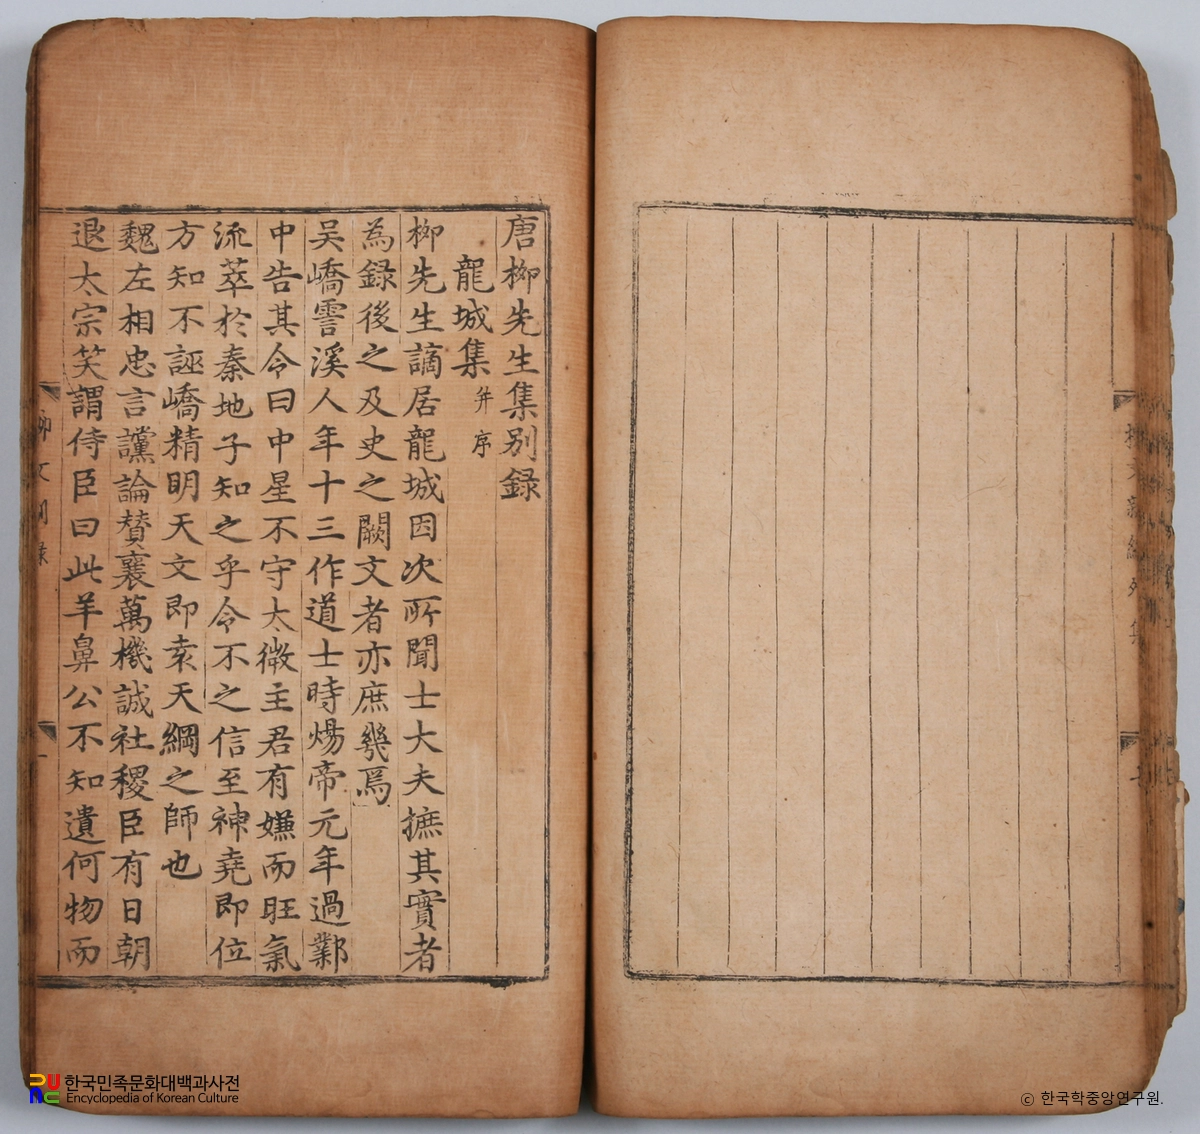 唐柳先生集別録
龍城集
并序
柳先生謫居龍城因次所聞士大夫摭其實者
為録後之及史之闕文者亦庶幾焉
吴嶠霅溪人年十三作道士時煬帝元年過鄴
中告其令曰中星不守太微主君有嫌而旺氣
流萃於秦地子知之乎令不之信至神堯即位
方知不誣嶠精明天文即袁天綱之師也
魏左相忠言讜論賛襄萬機誠社稷臣有日朝
退太宗笑謂侍臣曰此羊鼻公不知遺何物而
一
한국민족문화대백과사전
Encyclopedia of Korean Culture
© 한국학중앙연구원.